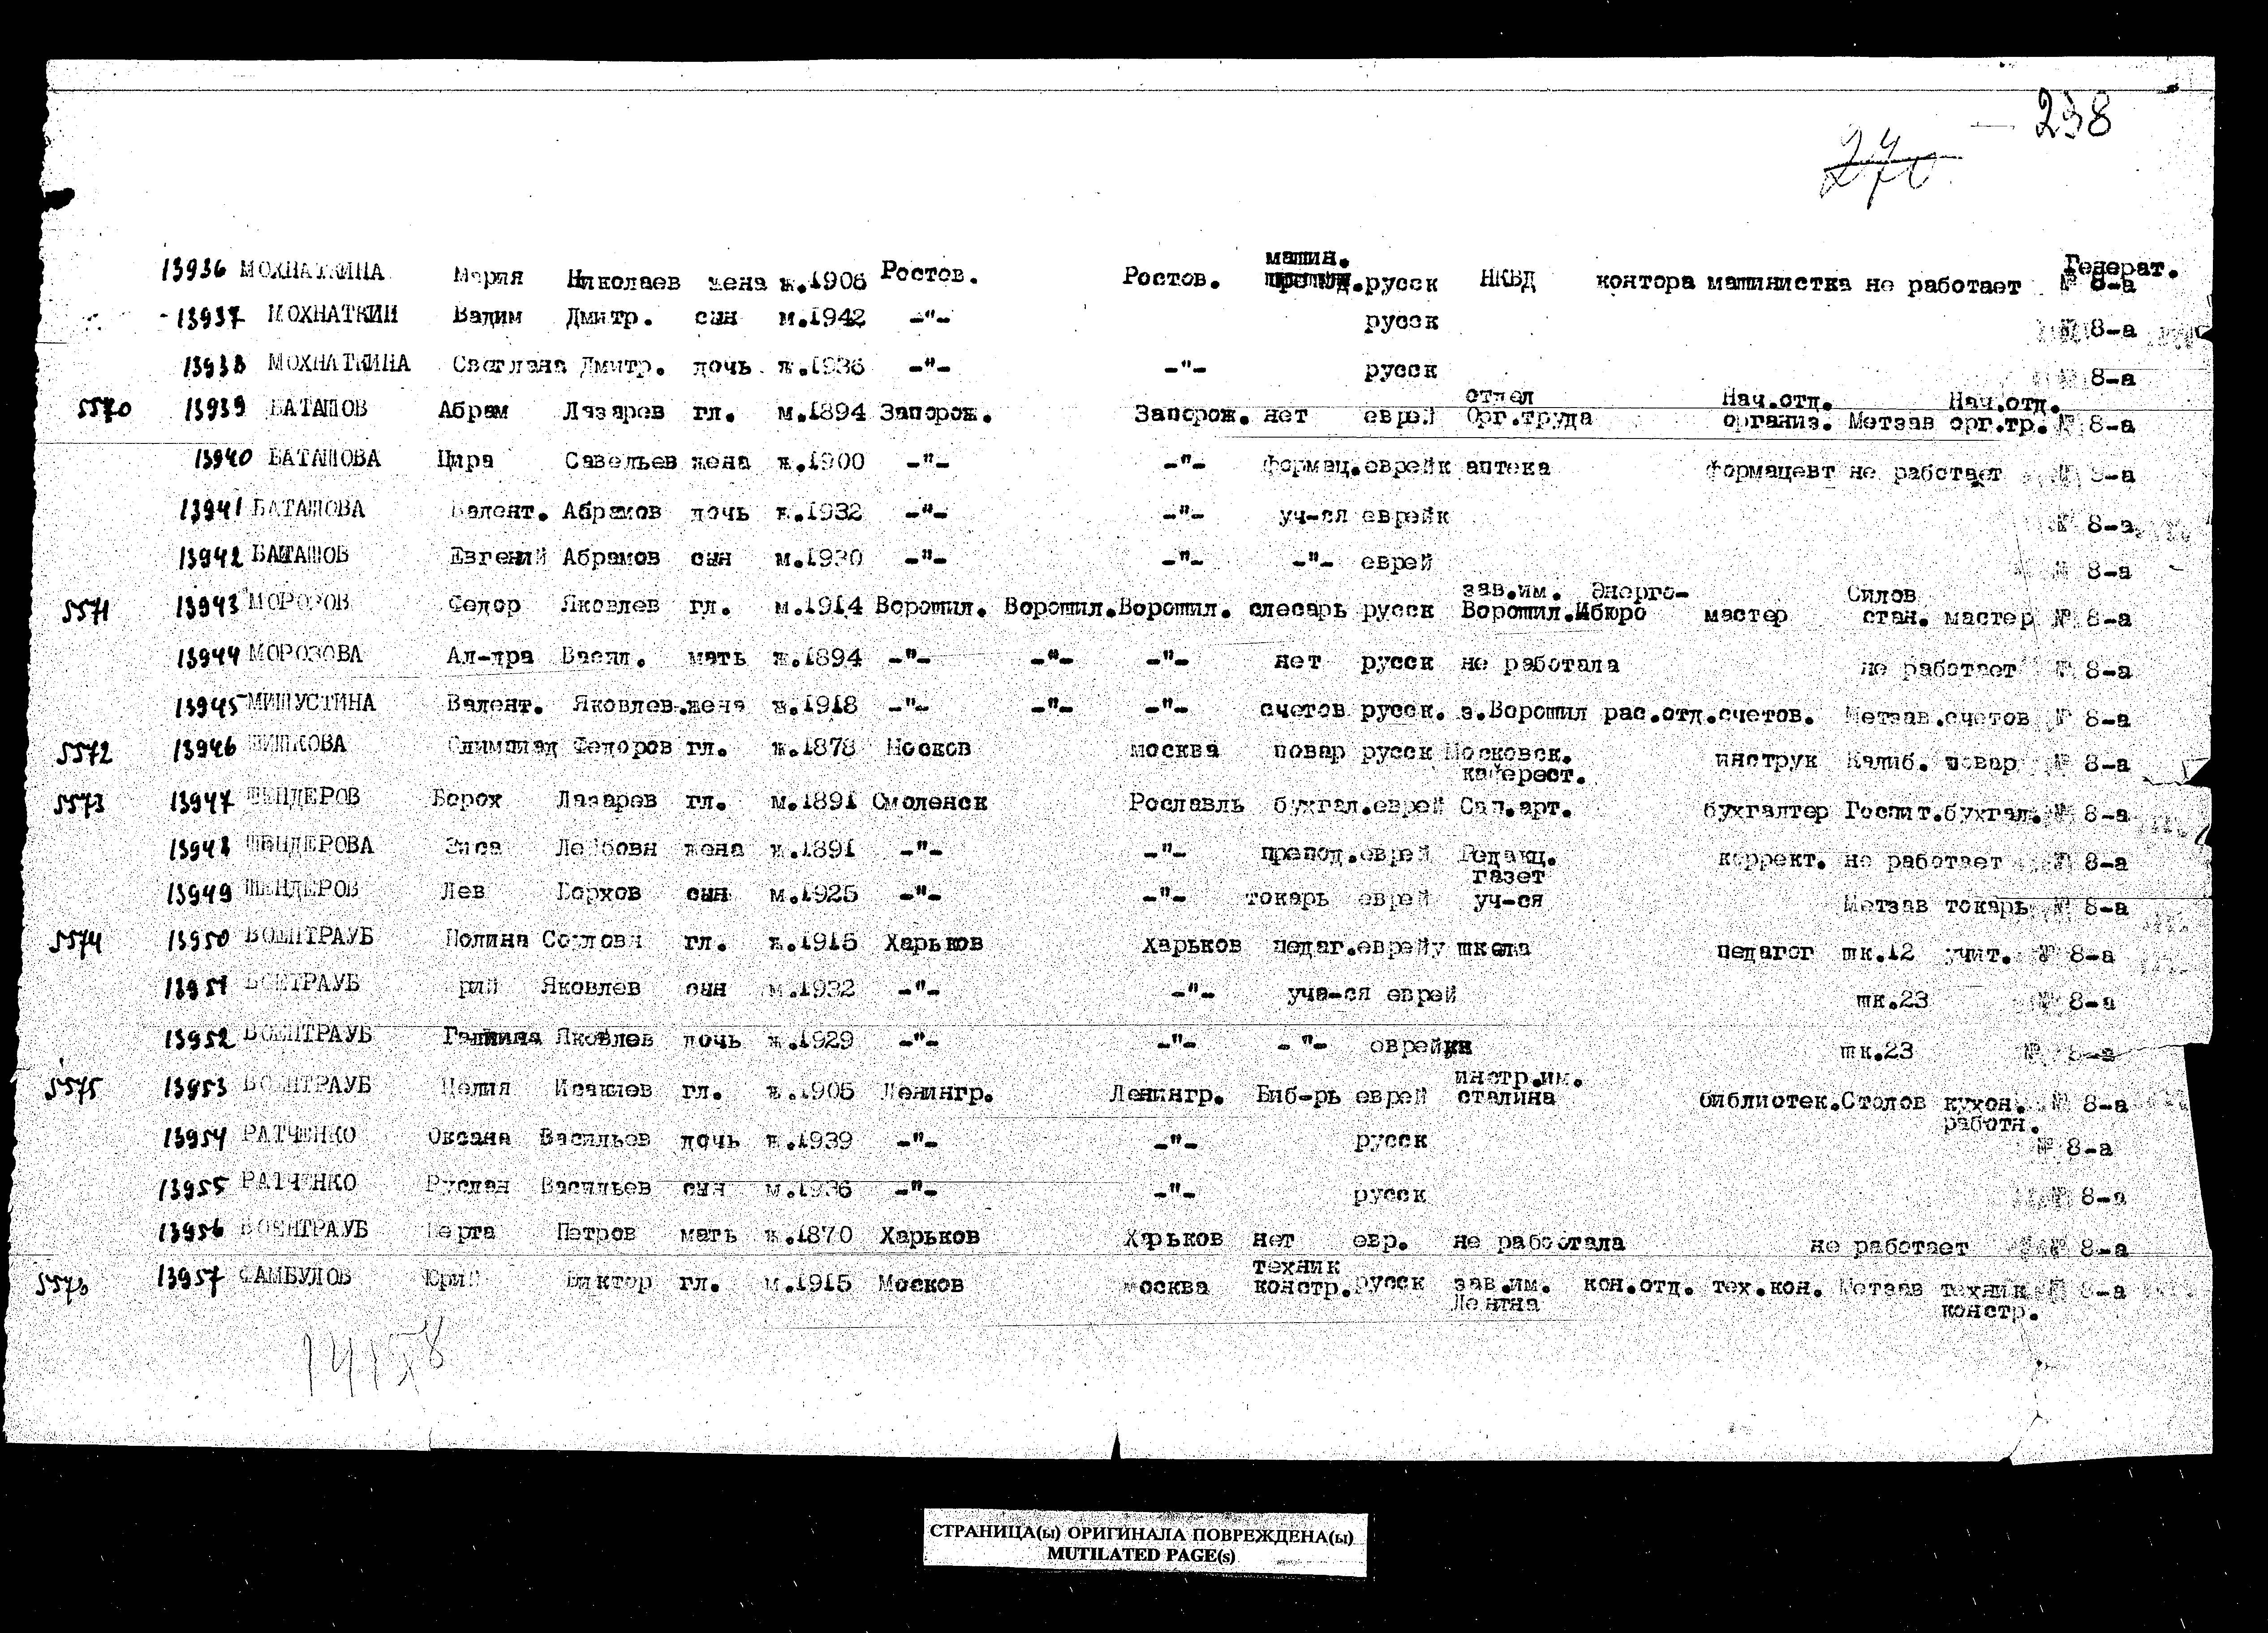 238
270
машин. Генерат.
13936 МОХНАТКИНА Мария Николаев жена ж.1906 Ростов. Ростов. русск НКВД контора машинистка не работает № 8-а
13937 МОХНАТКИН Вадим Дмитр. сын м.1942 -"- русск № 8-а
13938 МОХНАТКИНА Светлана Дмитр. дочь ж.1936 -"- -"- русск № 8-а
отдел Нач.отд. Нач.отд.
5570 13939 БАТАШОВ Абрам Лазарев гл. м.1894 Запорож. Запорож. нет еврей Орг.труда организ. Метзав орг.тр. № 8-а
13940 БАТАШОВА Цира Савельев жена ж.1900 -"- -"- формац. еврейк аптека формацевт не работает № 8-а
13941 БАТАШОВА Валент. Абрамов дочь ж.1932 -"- -"- уч-ся еврейк № 8-а
13942 БАТАШОВ Евгений Абрамов сын м.1930 -"- -"- -"- еврей № 8-а
зав.им. Энерго- Силов
5571 13943 МОРОЗОВ Федор Яковлев гл. м.1914 Ворошил. Ворошил. Ворошил. слесарь русск Ворошил. бюро мастер стан. мастер № 8-а
13944 МОРОЗОВА Ал-дра Васил. мать ж.1894 -"- -"- -"- нет русск не работала не работает № 8-а
13945 МИШУСТИНА Валент. Яковлев. жена ж.1918 -"- -"- -"- счетов русск. з.Ворошил рас.отд.счетов. Метзав.счетов № 8-а
5572 13946 ШИШКОВА Олимпиад Федоров гл. ж.1878 Москов москва повар русск Московск. инструк Калиб. повар № 8-а
каферест.
5573 13947 ШЕНДЕРОВ Борох Лазарев гл. м.1891 Смоленск Рославль бухгал. еврей Сап.арт. бухгалтер Госпит.бухгал. № 8-а
13948 ШЕНДЕРОВА Лейбовн жена ж.1891 -"- -"- препод. еврей Редакц. коррект. не работает № 8-а
газет
13949 ШЕНДЕРОВ Лев Борхов сын м.1925 -"- -"- токарь еврей уч-ся Метзав токарь № 8-а
5574 13950 ВОЕНТРАУБ Полина гл. ж.1915 Харьков Харьков педаг. школа педагог шк.12 учит. № 8-а
13951 ВОЕНТРАУБ Яковлев сын м.1932 -"- -"- уча-ся еврей шк.23 № 8-а
13952 ВОЕНТРАУБ Галина Яковлев дочь ж.1929 -"- -"- -"- шк.23 № 8-а
инстр.им.
5575 13953 ВОЕНТРАУБ Исакиев гл. ж.1905 Ленингр. Ленингр. Биб-рь еврей сталина библиотек. Столов кухон. № 8-а
работн.
13954 РАТЧЕНКО Оксана Васильев дочь ж.1939 -"- -"- русск № 8-а
13955 РАТЧЕНКО Руслан Васильев сын м.1936 -"- -"- русск № 8-а
13956 ВОЕНТРАУБ Берта Петров мать ж.1870 Харьков Харьков нет евр. не работала не работает № 8-а
техник
13957 САМБУЛОВ Юрий Виктор гл. м.1915 Москов москва констр. русск зав.им. кон.отд. тех.кон. Метзав техник № 8-а
Ленина констр.
СТРАНИЦА(ы) ОРИГИНАЛА ПОВРЕЖДЕНА(ы)
MUTILATED PAGE(s)